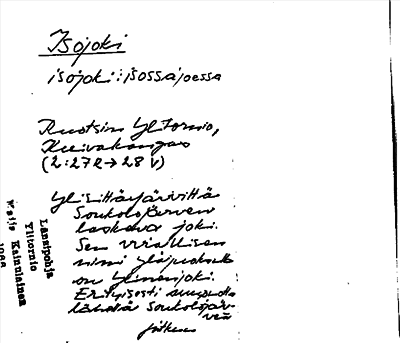 Isojoki
isojoki : isossajoessa
Ruotsin Ylitornio,
Kuivakangas
(2:27 R → 28 V)
Soukolojärveen
laskeva joki.
Sen virallisen
nimi yläjuoksulla
on Ylinenjoki.
Erityisesti
lähellä Soukolojär-
veä
jatkuu
Länsipohja
Ylitornio
Maija Kainulainen
1966